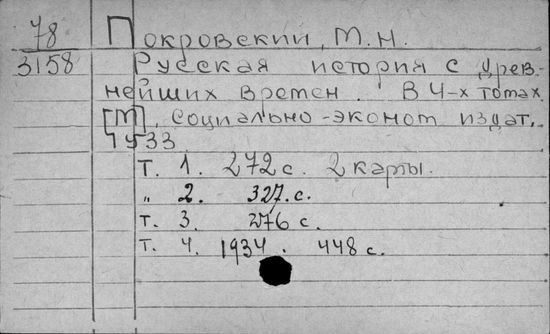 78 Покровский, М.Н.
3158 Русская история с древ-
нейших времен. В 4-х томах
[М], социально-эконом издат.
1933
Т. 1. 272 с. 2 карты.
„ 2. 327. с.
т. 3. 276 с.
т. 4. 1934. 448 с.